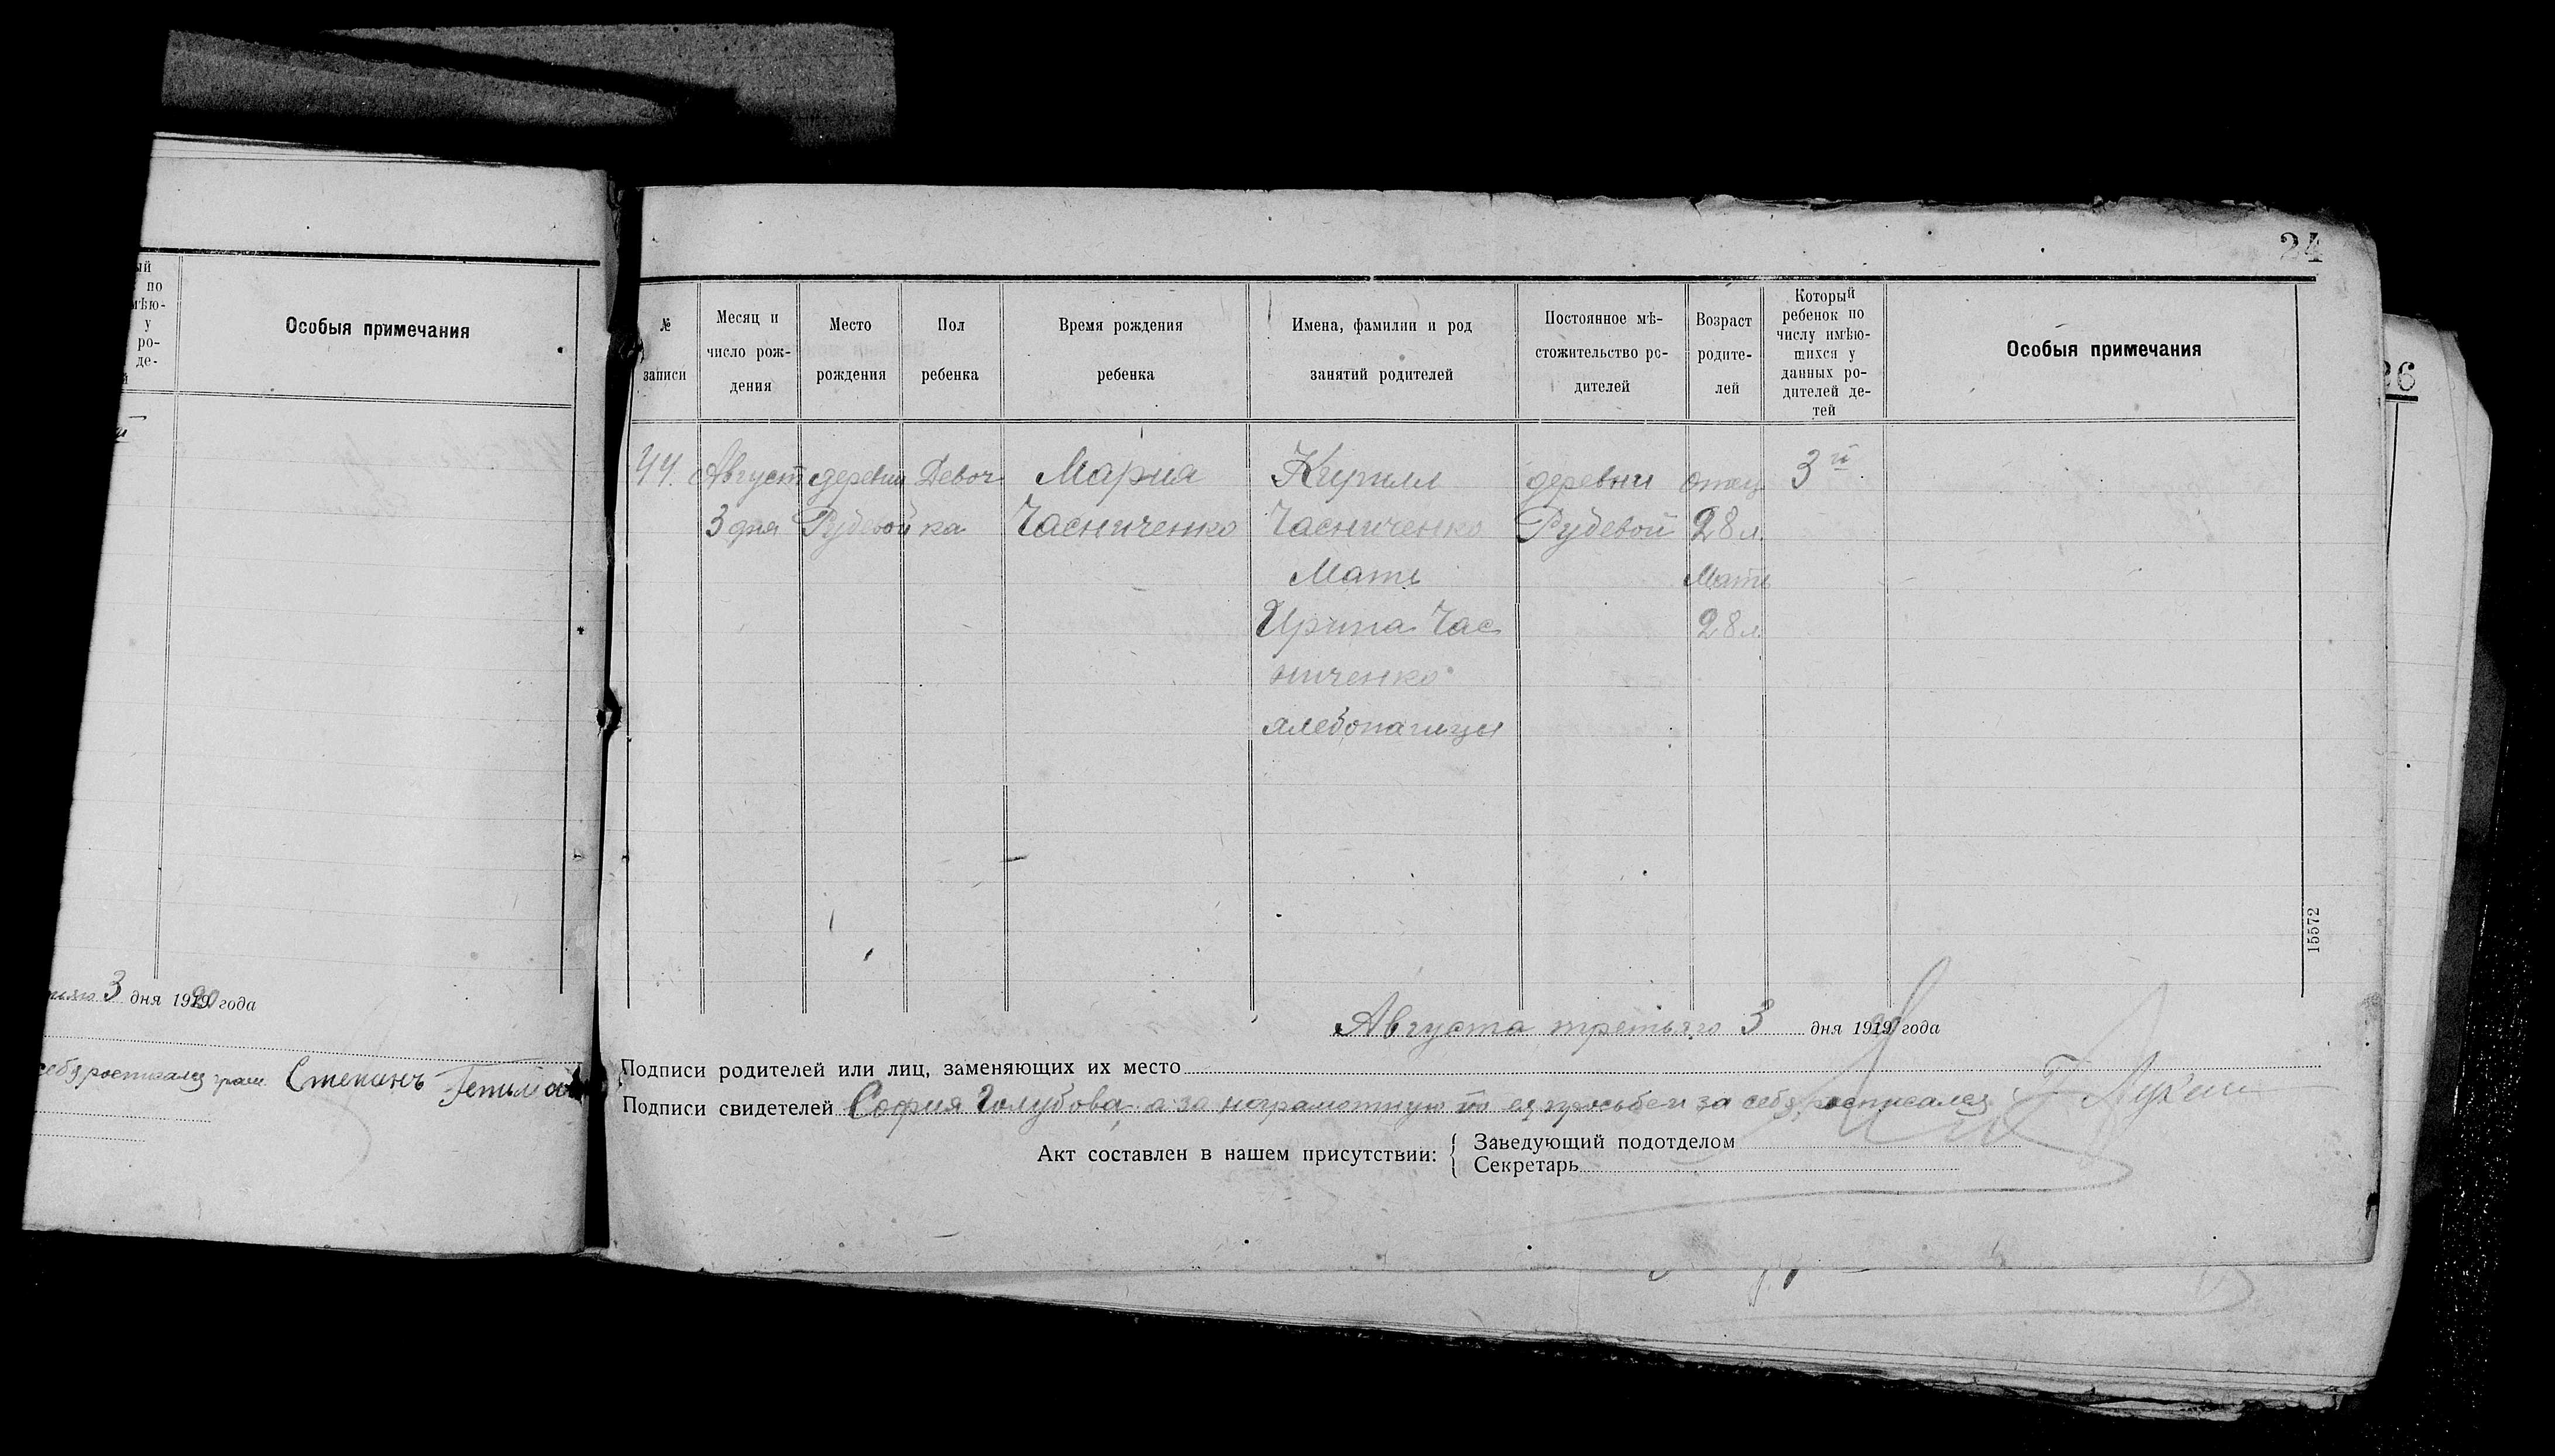 ый
по
мѣю-
у
ро-
де-
й
Особыя примечания
3 дня 1920 года
себя росписался грам. Степанъ Гетьма
24
26
№ записи
Месяц и число рож-дения
Место рождения
Пол ребенка
Время рождения ребенка
Имена, фамилии и род занятий родителей
Постоянное мѣ-стожительство ро-дителей
Возраст родите-лей
Который ребенок по числу имѣю-щихся у данных ро-дителей де-тей
Особыя примечания
44. Август деревни Девоч Мария Кирилл деревни отец 3й
3 дня Рудевой ка Часниченко Часниченко Рудевой 28 л.
Мать Мать
Ирина Час 28 л
ниченко
хлебопашцы
15572
Августа третьяго 3 дня 1920 года
Подписи родителей или лиц, заменяющих их место
Подписи свидетелей София Голубова, а за неграмотную по ея просьбеи за себя росписался
Акт составлен в нашем присутствии:
Заведующий подотделом
Секретарь